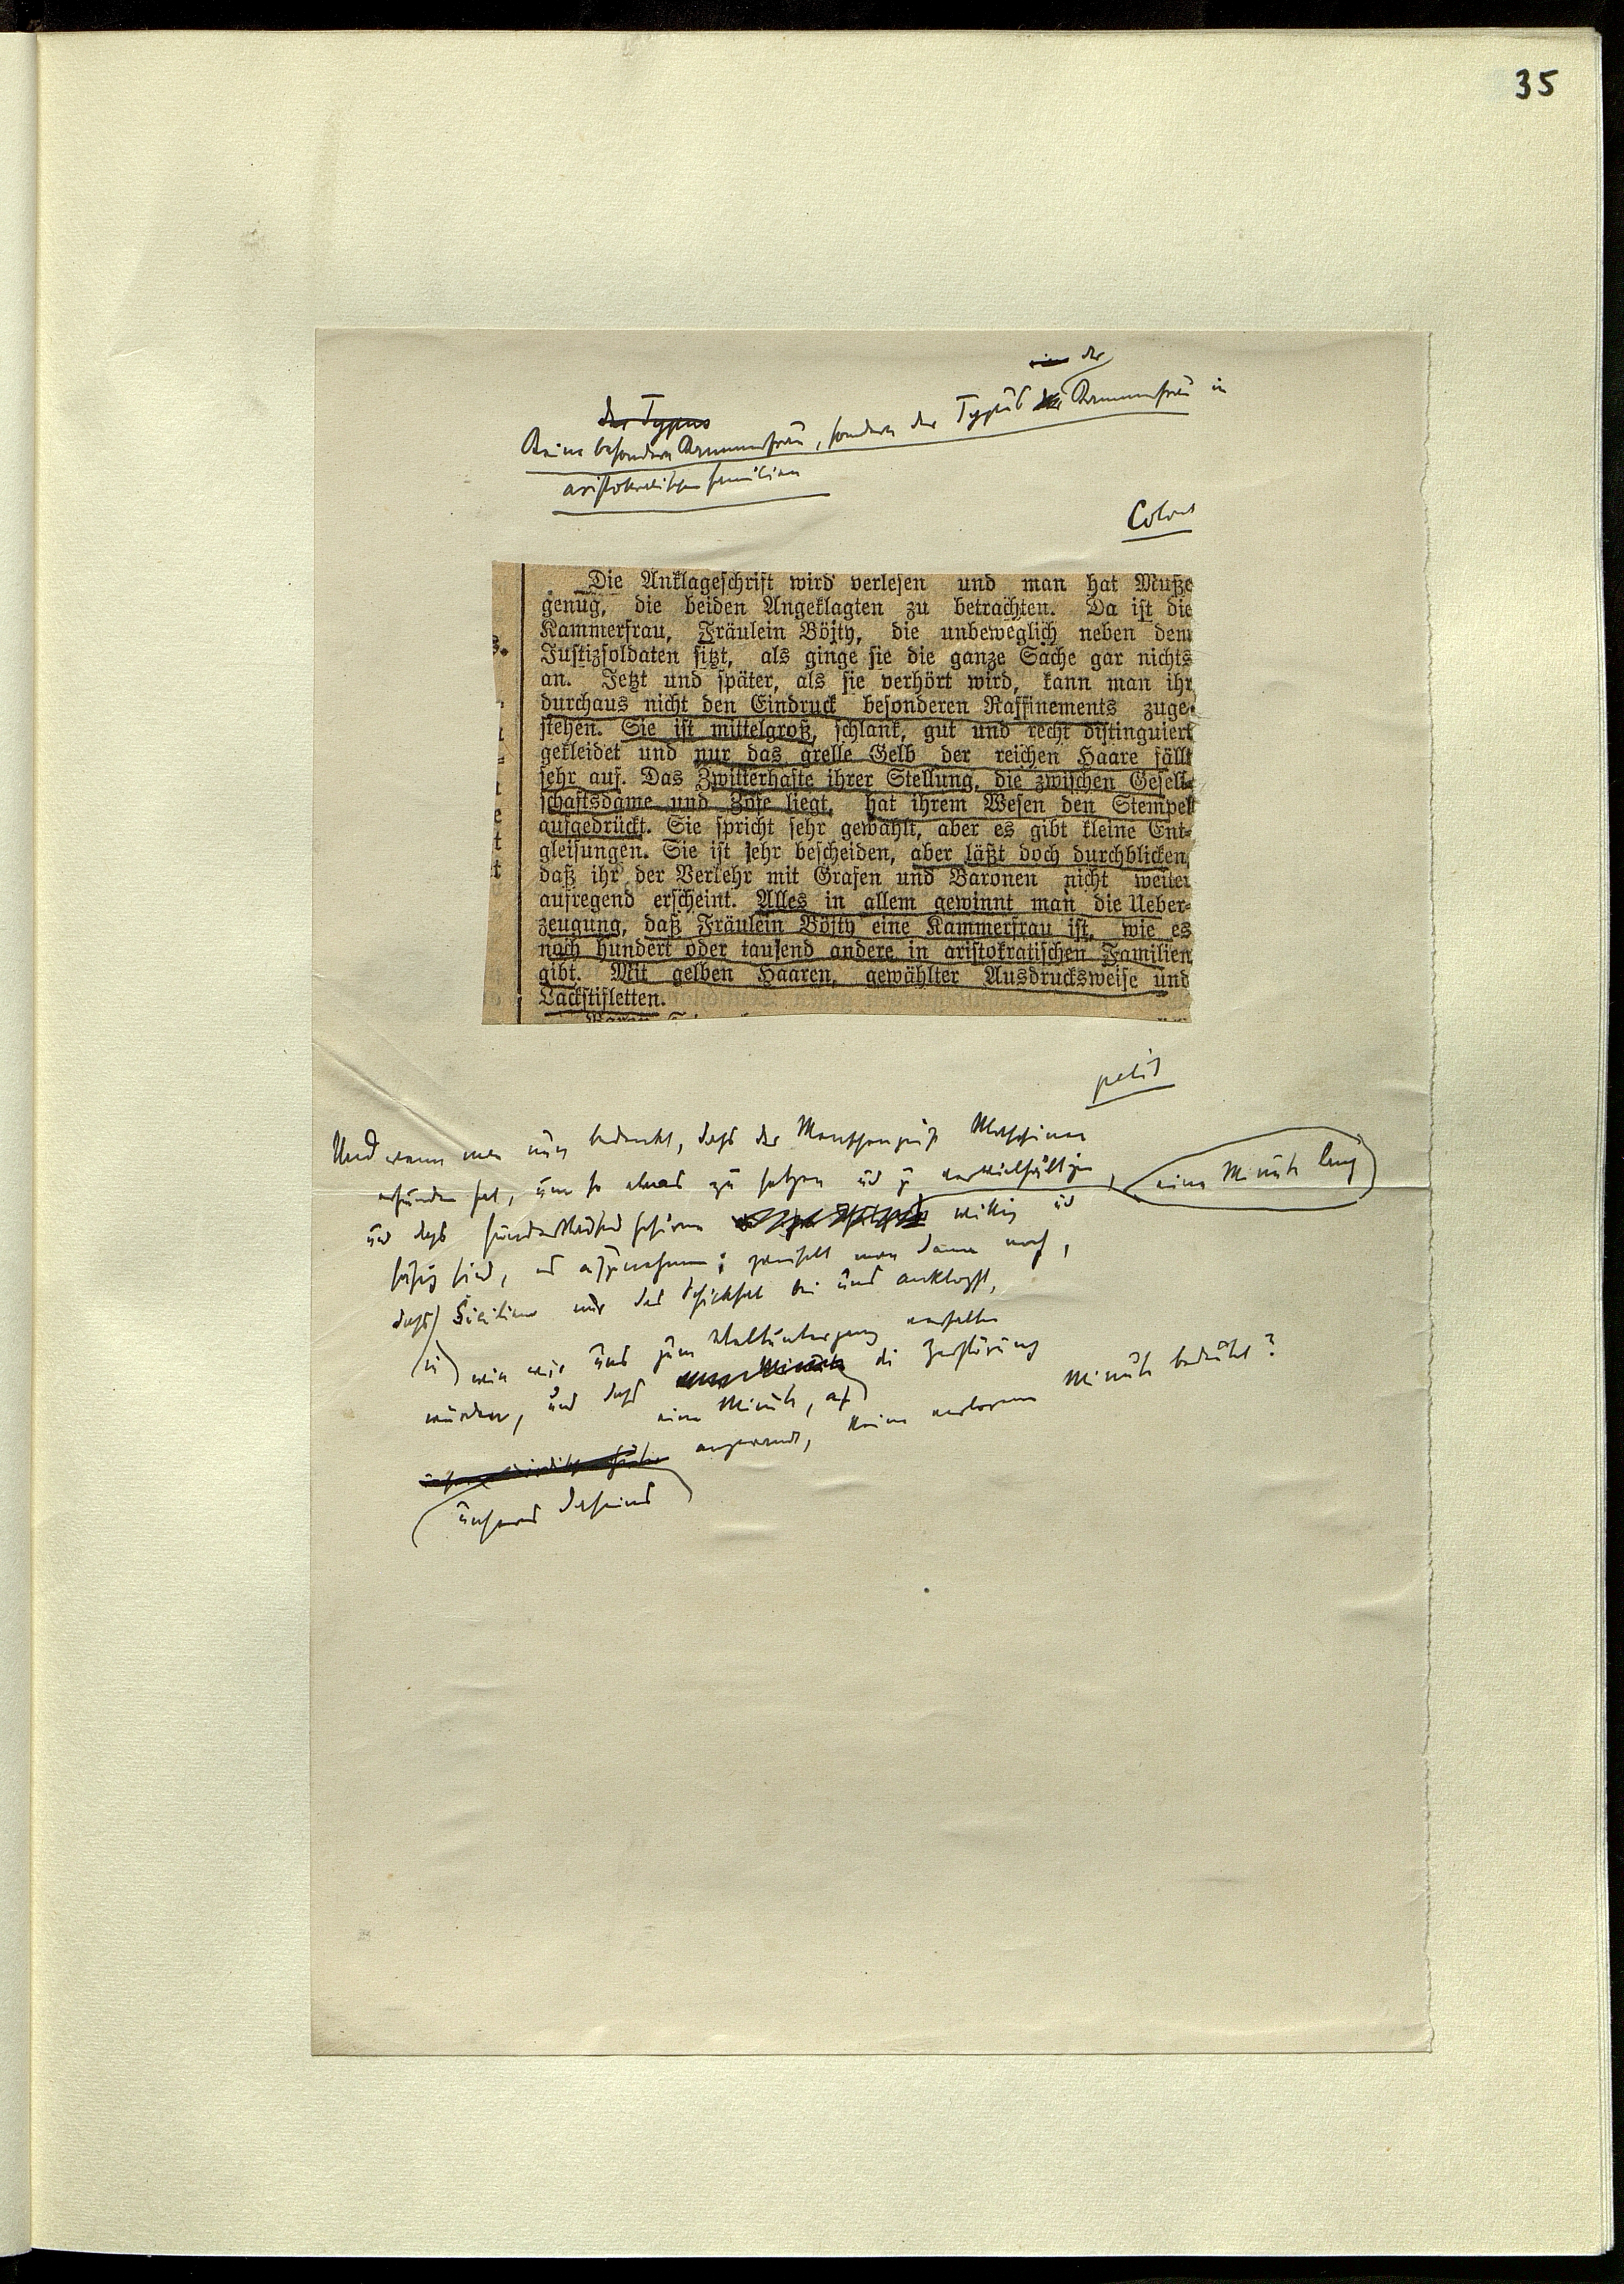 35
der
der Typus
Keine besondere Kammerfrau, sondern der Typus Kammerfrau in
aristokratischen Familien
Colonel
Die Anklageschrift wird verlesen und man hat Muße
genug, die beiden Angeklagten zu betrachten. Da ist die
Kammerfrau, Fräulein Böjty, die unbeweglich neben dem
Justizsoldaten sitzt, als ginge sie die ganze Sache gar nichts
an. Jetzt und später, als sie verhört wird, kann man ihr
durchaus nicht den Eindruck besonderen Raffinements zuge-
stehen. Sie ist mittelgroß, schlank, gut und recht distinguiert
gekleidet und nur das grelle Gelb der reichen Haare fällt
sehr auf. Das Zwitterhafte ihrer Stellung, die zwischen Gesell-
schaftsdame und Zofe liegt, hat ihrem Wesen den Stempel
aufgedrückt. Sie spricht sehr gewählt, aber es gibt kleine Ent-
gleisungen. Sie ist sehr bescheiden, aber läßt doch durchblicken,
daß ihr der Verkehr mit Grafen und Baronen nicht weiter
aufregend erscheint. Alles in allem gewinnt man die Ueber-
zeugung, daß Fräulein Böjty eine Kammerfrau ist, wie es
noch hundert oder tausend andere in aristokratischen Familien
gibt. Mit gelben Haaren, gewählter Ausdrucksweise und
Lackstifletten.
petit
Und wenn man nun bedenkt, daß der Menschengeist Maschinen
erfunden hat, um so etwas zu setzen und zu vervielfältigen, eine Minute lang
und daß hunderttausend Gehirne willig und
fähig sind, es aufzunehmen: zweifelt man dann noch,
daß Sicilien nur das Schicksal bei uns anklopft,
wie wir uns zum Weltuntergang verhalten
würden, und daß die Zerstörung
eine Minute, auf
angewandt, keine verlorene Minute bedeutet?
unseres Daseins